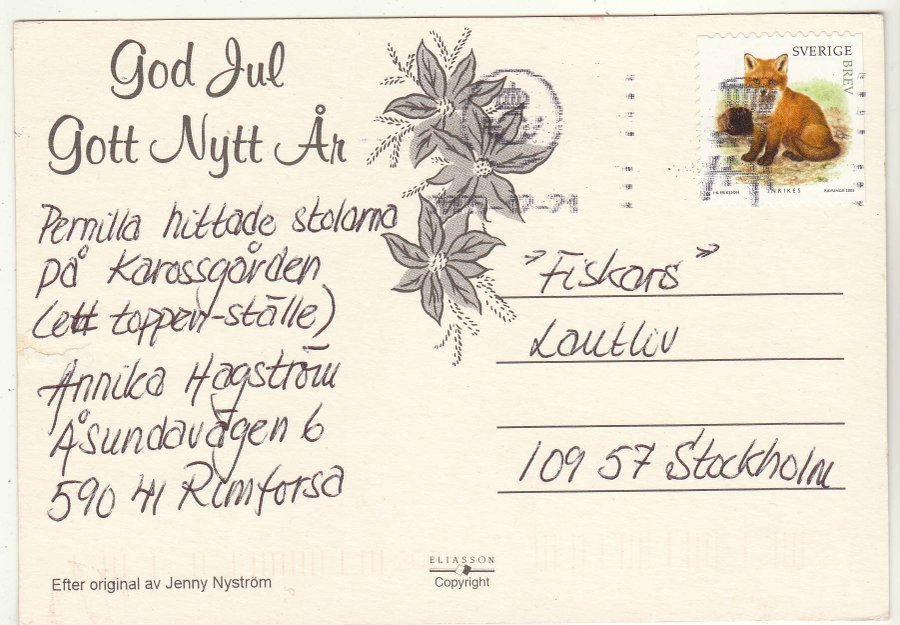 God Jul
Gott Nytt År
Pernilla hittade stolarna
på Karossgården
(ett toppen-ställe)
Annika Hagström
Åsundavägen 6
590 41 Rimforsa
Efter original av Jenny Nyström
ELIASSON
Copyright
SVERIGE
BREV
INRIKES
-12-21
"Fiskars"
Lantliv
109 57 Stockholm